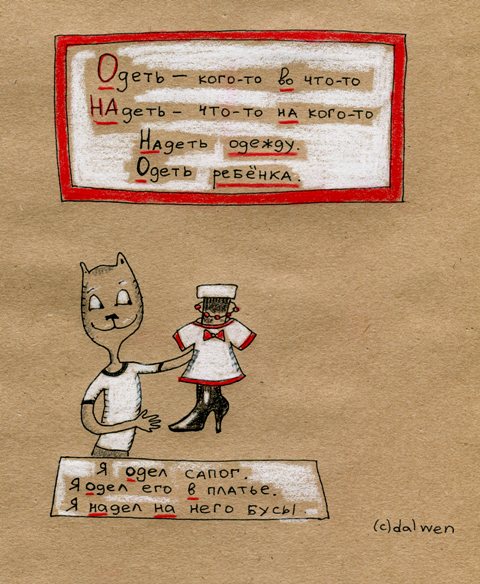 Одеть – кого-то во что-то
НАдеть – что-то на кого-то
Надеть одежду.
Одеть ребёнка.
Я одел сапог.
Я одел его в платье.
Я надел на него бусы.
(c)dalwen